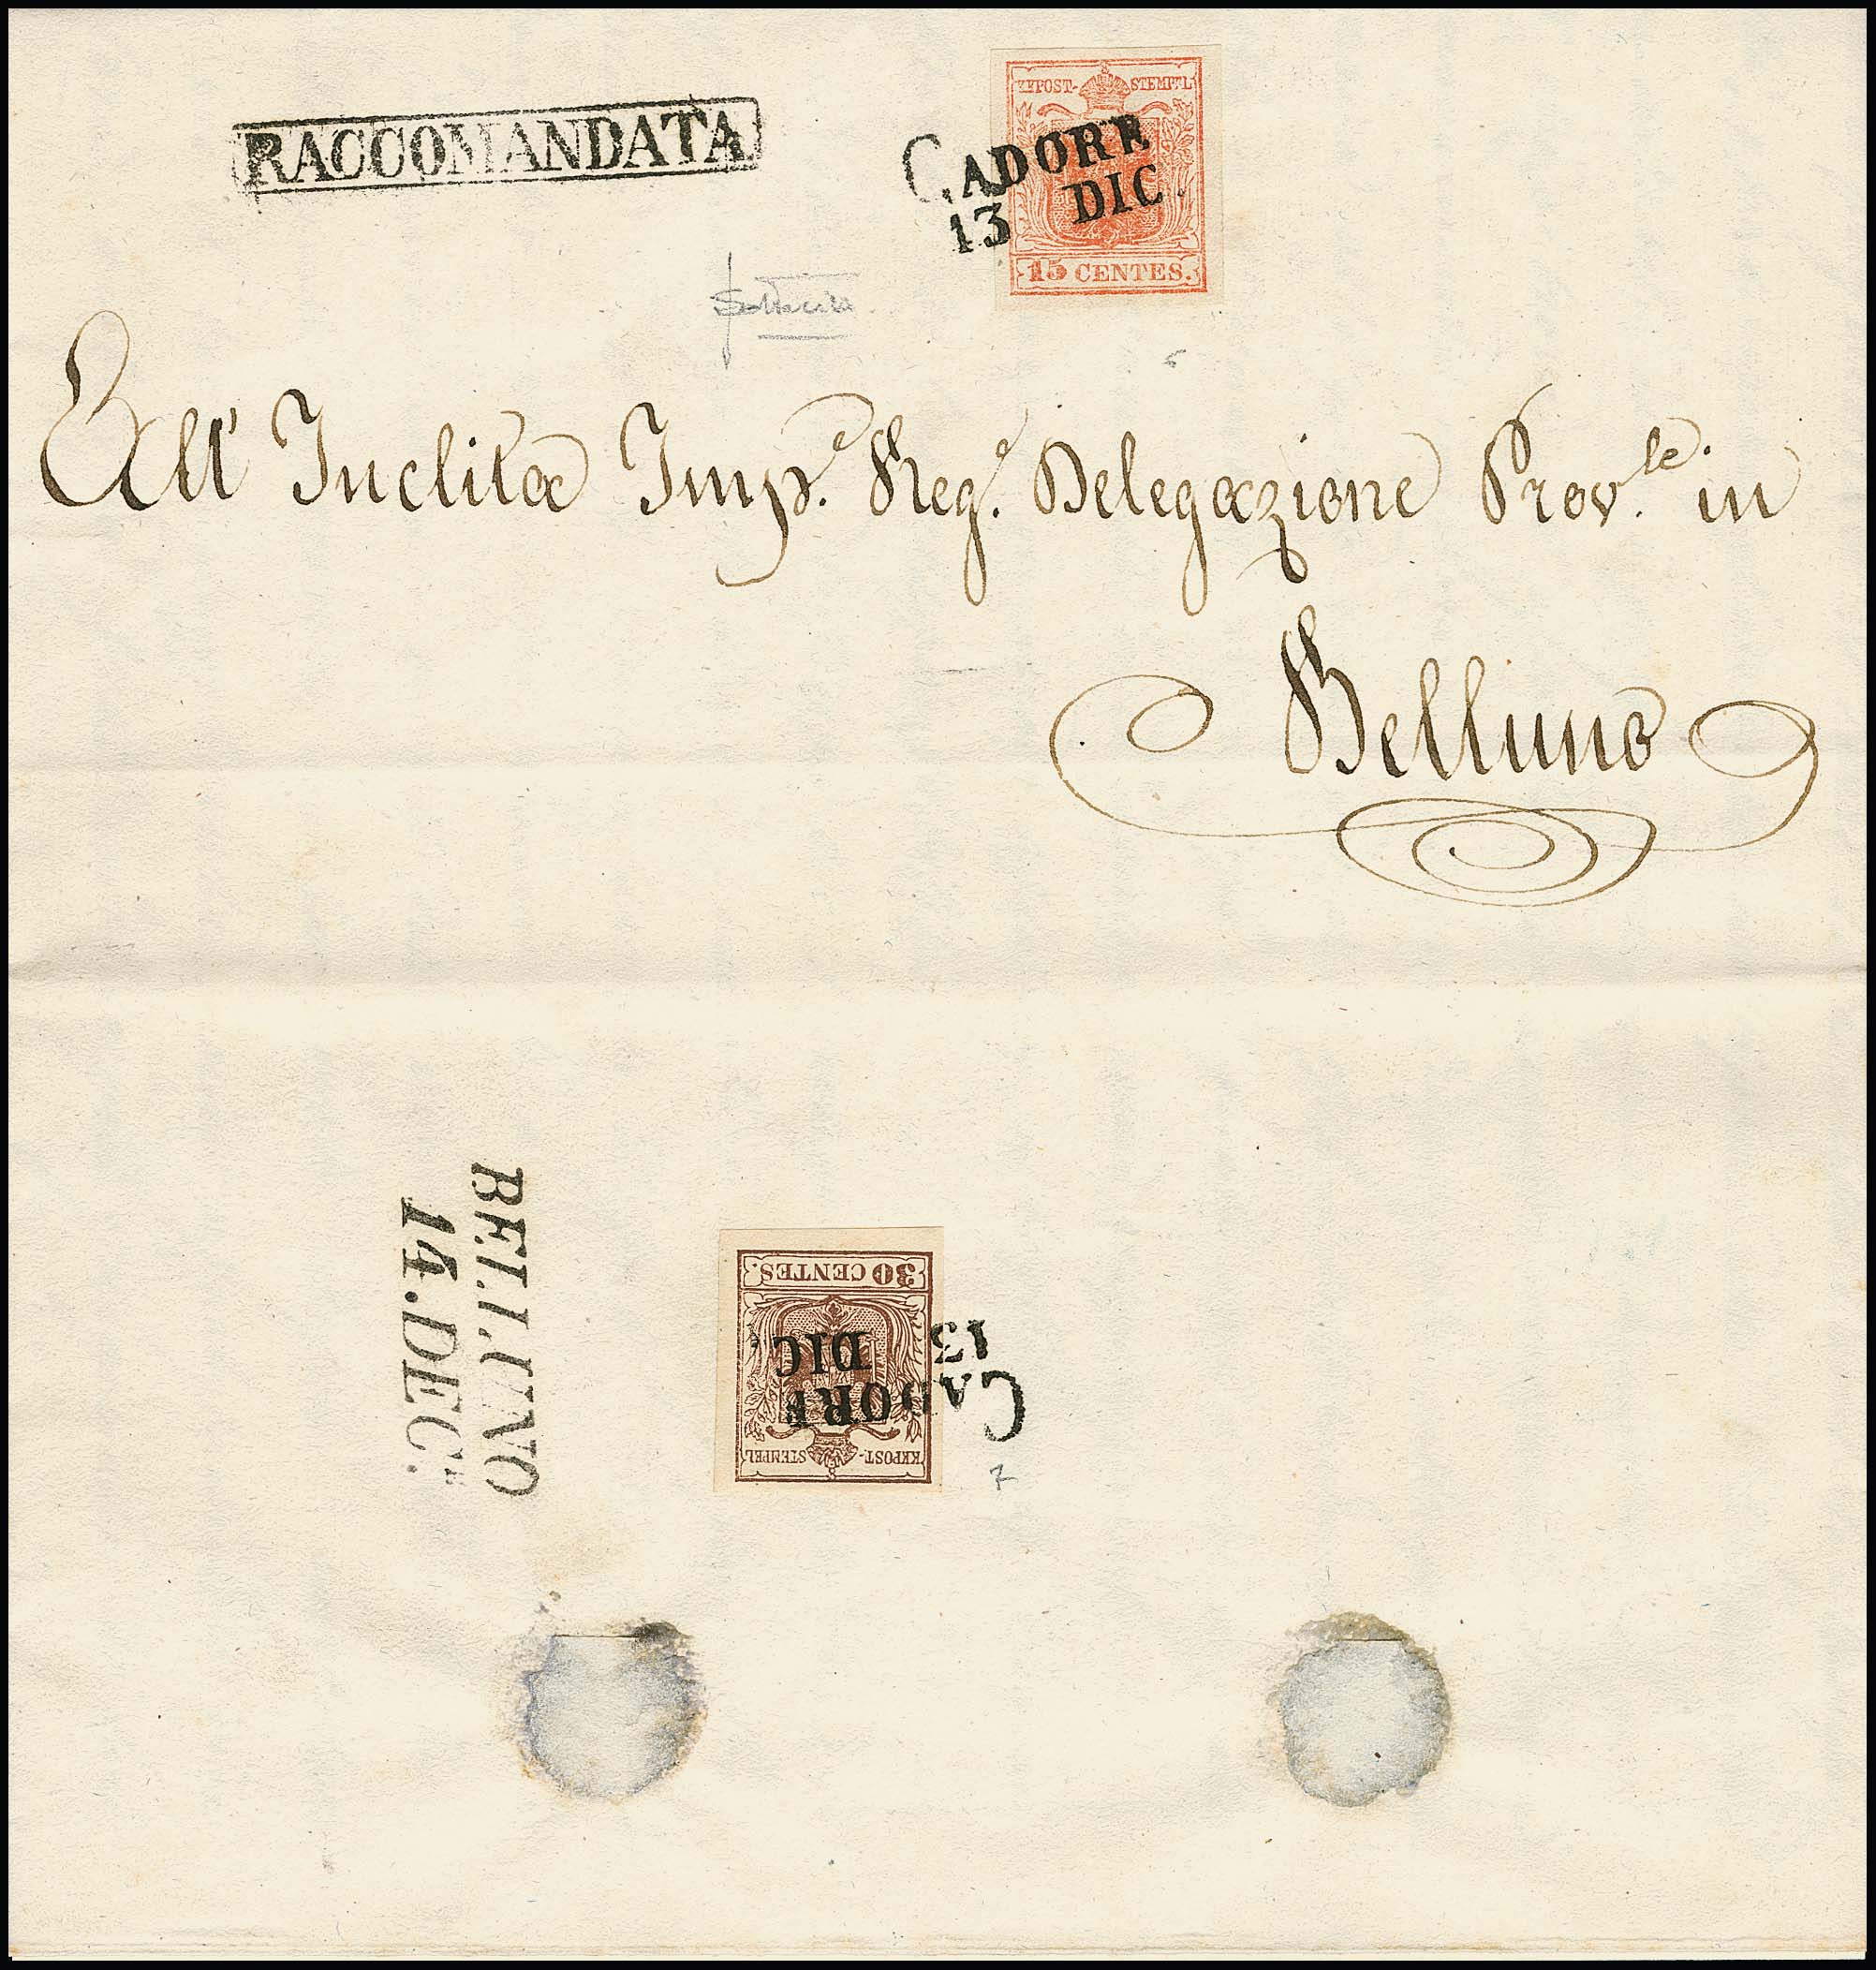 RACCOMANDATA
KKPOST-STEMPEL
CADORE
13 DIC.
15 CENTES.
All' Inclita Imp.e Reg.e Delegazione Prov.le in
Belluno
BELLUNO
14.DEC.E
30 CENTES.
13 DIC.
CADORE
KKPOST-STEMPEL